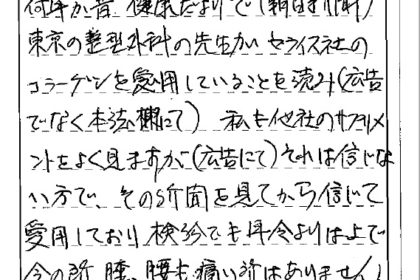 何年か昔、健康だよりで(朝日新聞)
東京の整型外科の先生がセライス社の
コラーゲンを愛用していることを読み(広告
でなく本誌欄にて) 私も他社のサプリメ
ントをよく見ますが(広告にて)それは信じな
い方で、その新聞を見てから信じて
愛用しており検診でも年令よりは上で
今の所 膝、腰も痛い所はありません。